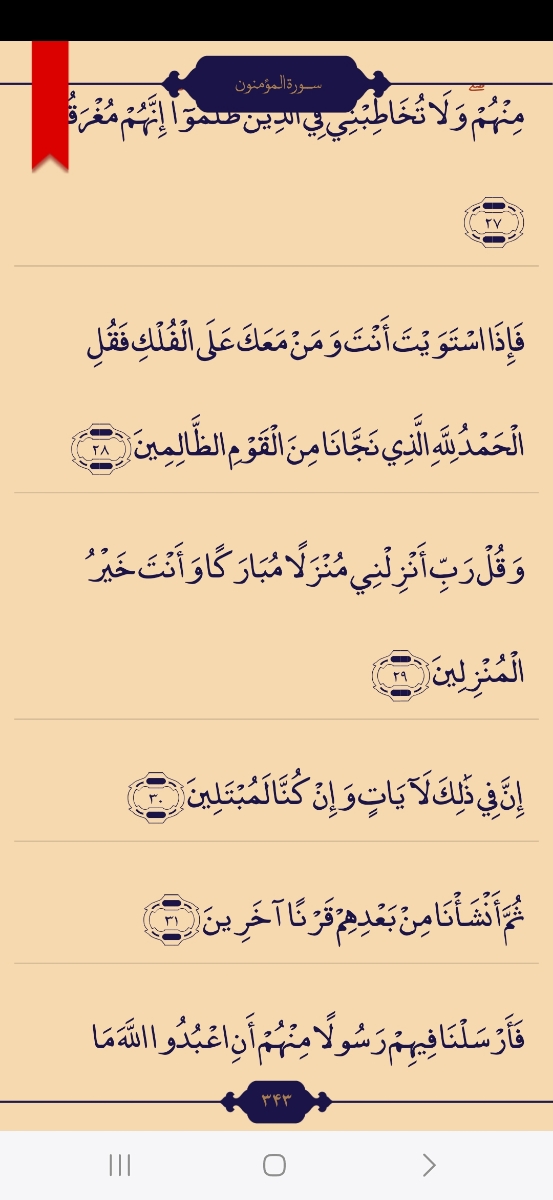 سورة المؤمنون
مِنْهُمْ وَلَا تُخَاطِبْنِي فِي الَّذِينَ ظَلَمُوٓا إِنَّهُمْ مُغْرَقُ
٢٧
فَإِذَا اسْتَوَيْتَ أَنْتَ وَمَنْ مَعَكَ عَلَى الْفُلْكِ فَقُلِ
الْحَمْدُ لِلَّهِ الَّذِي نَجَّانَا مِنَ الْقَوْمِ الظَّالِمِينَ ٢٨
وَقُلْ رَبِّ أَنْزِلْنِي مُنْزَلًا مُبَارَكًا وَأَنْتَ خَيْرُ
الْمُنْزِلِينَ ٢٩
إِنَّ فِي ذَٰلِكَ لَآيَاتٍ وَإِنْ كُنَّا لَمُبْتَلِينَ ٣٠
ثُمَّ أَنْشَأْنَا مِنْ بَعْدِهِمْ قَرْنًا آخَرِينَ ٣١
فَأَرْسَلْنَا فِيهِمْ رَسُولًا مِنْهُمْ أَنِ اعْبُدُوا اللَّهَ مَا
۳۴۳